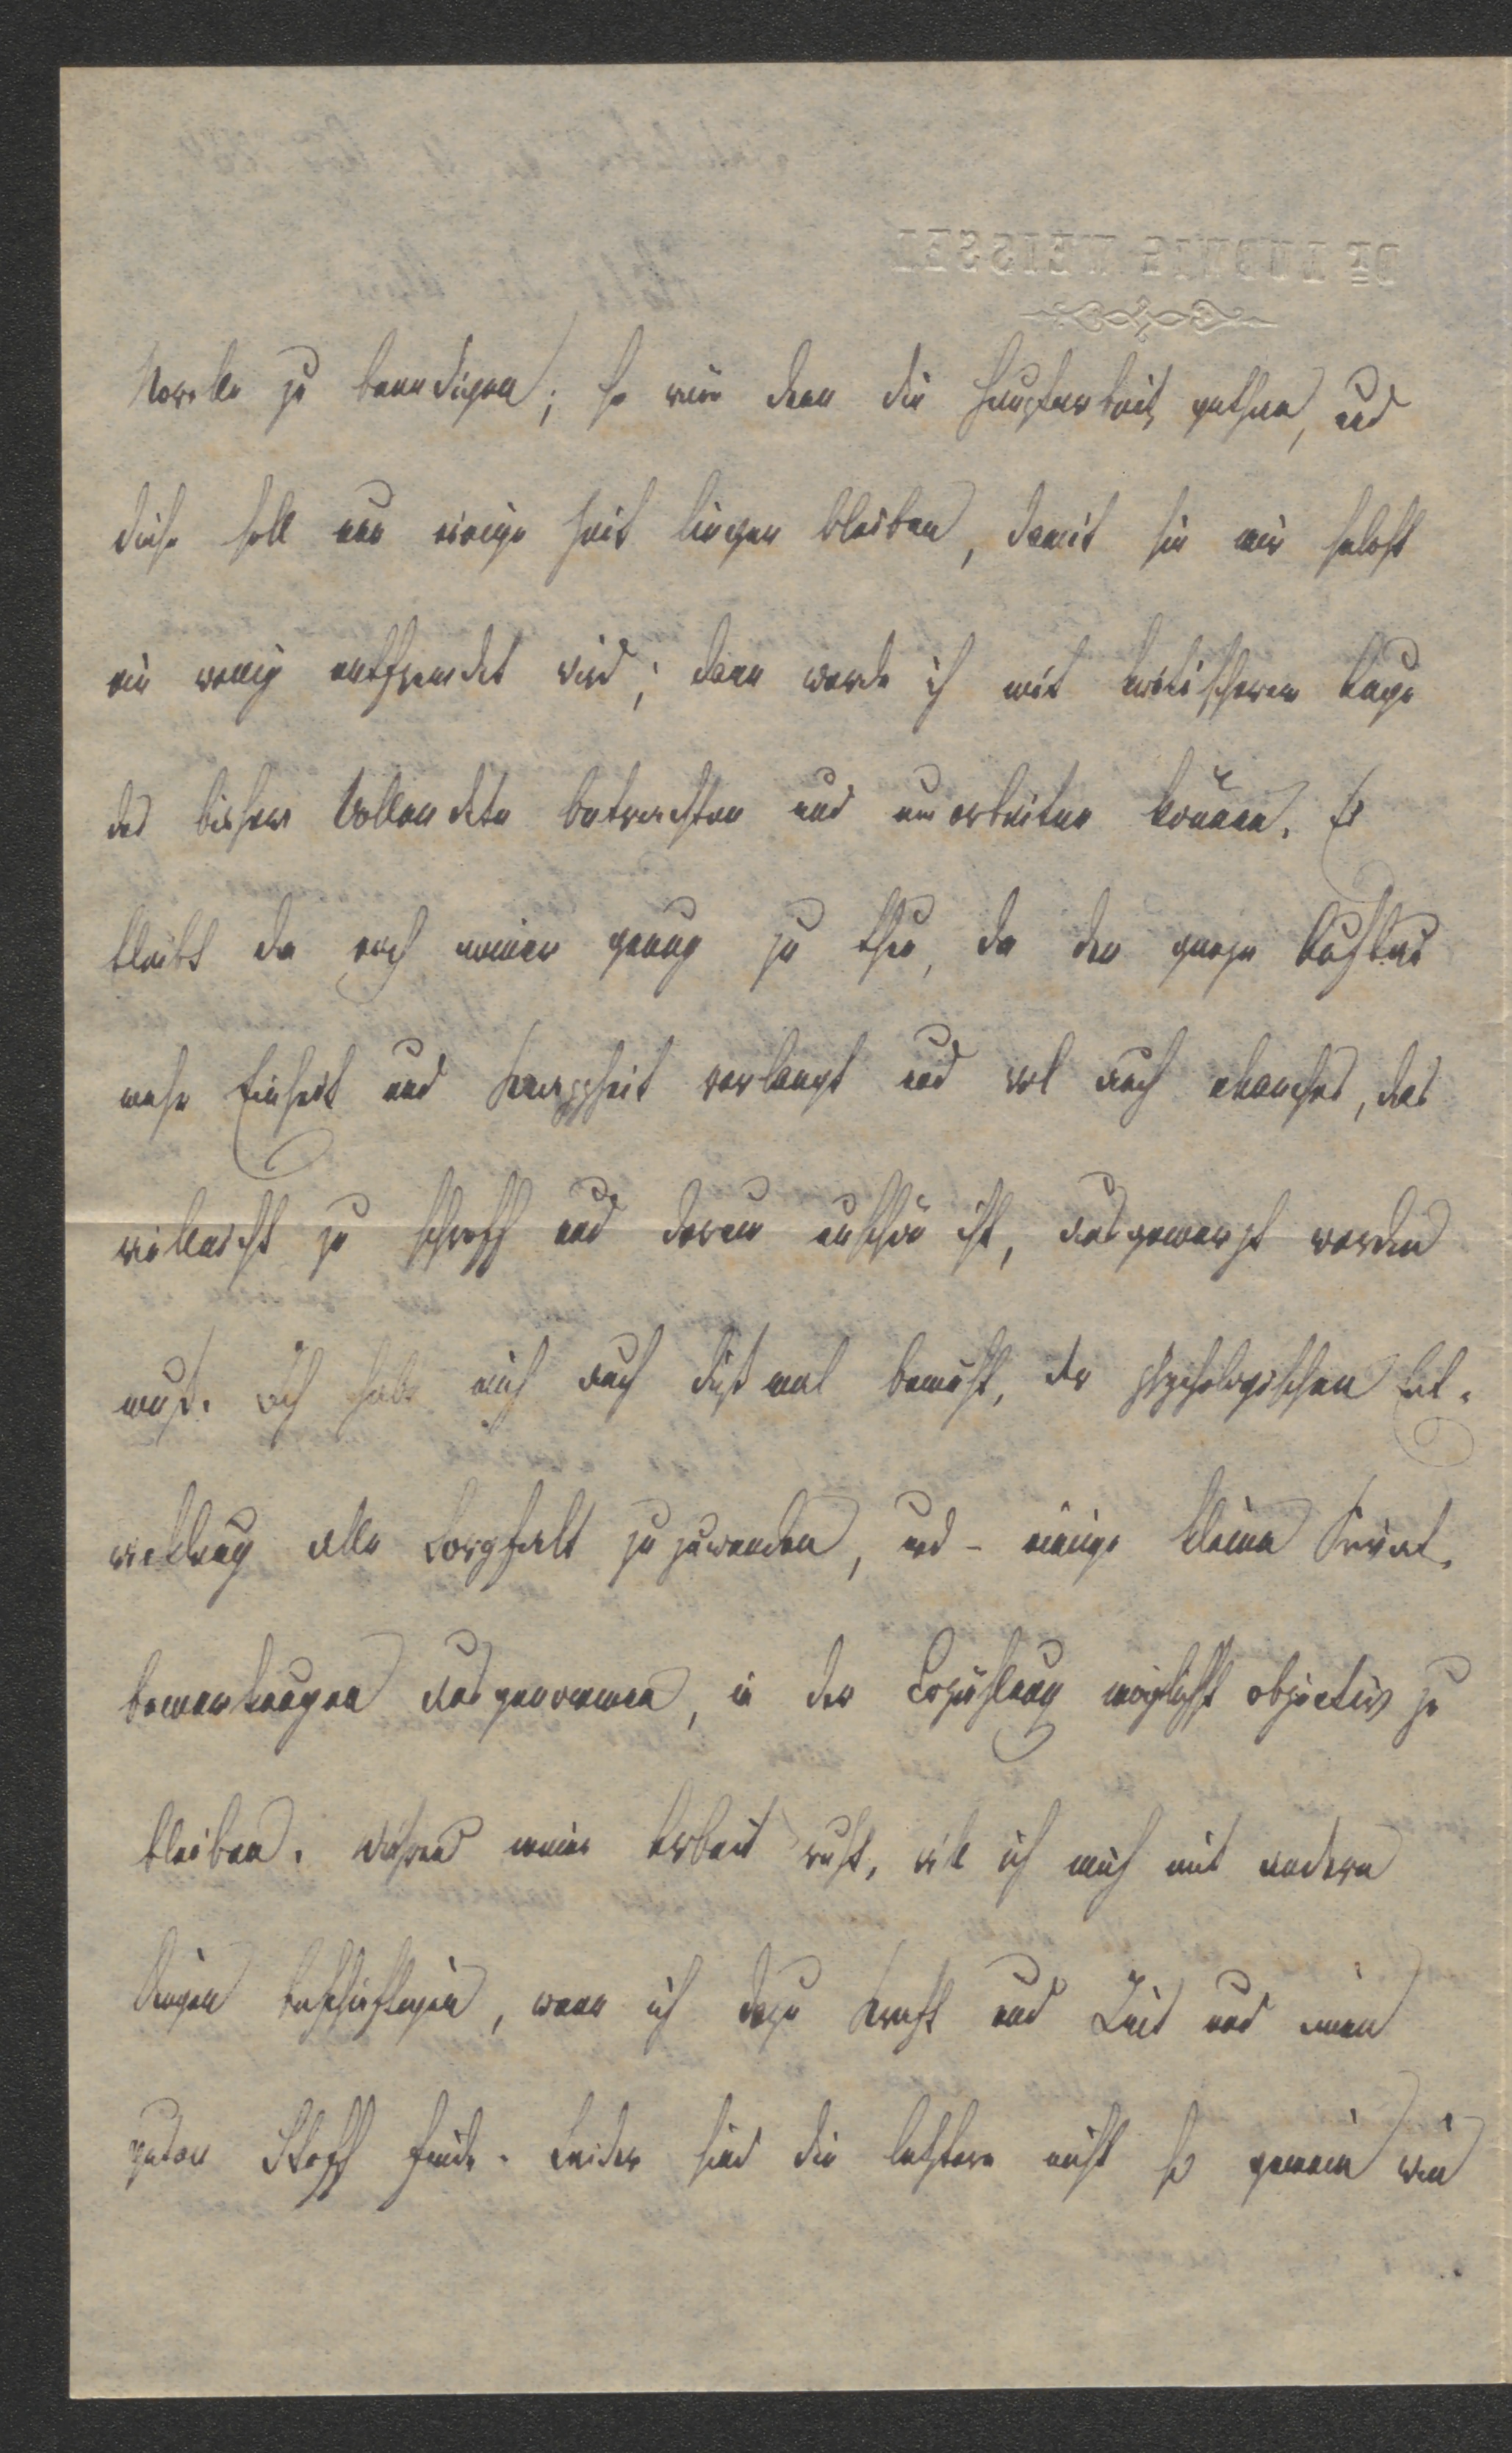 DR LUDWIG MEISSEL
Novelle zu beendigen; so wäre dann die Hauptarbeit gethan, und
diese soll nun einige Zeit liegen bleiben, damit sie mir selbst
ein wenig entfremdet wird; dann werde ich mit kritischerem Auge
das bisher Vollendete betrachten und umarbeiten können. Es
bleibt da noch immer genug zu thun, da der ganze Aufbau
mehr Einheit und Knappheit verlangt und wol auch manches, das
vielleicht zu schroff und darum unschön ist, ausgemerzt werden
muß. Ich habe mich auch dießmal bemüht, der psychologischen Ent-
wicklung alle Sorgfalt zuzuwenden, und – einige kleine Privat-
bemerkungen ausgenommen, in der Erzählung möglichst objectiv zu
bleiben. Während meine Arbeit ruht, will ich mich mit andern
Dingen beschäftigen, wenn ich dazu Kraft und Zeit und einen
guten Stoff finde. Leider sind die letztern nicht so gemein wie